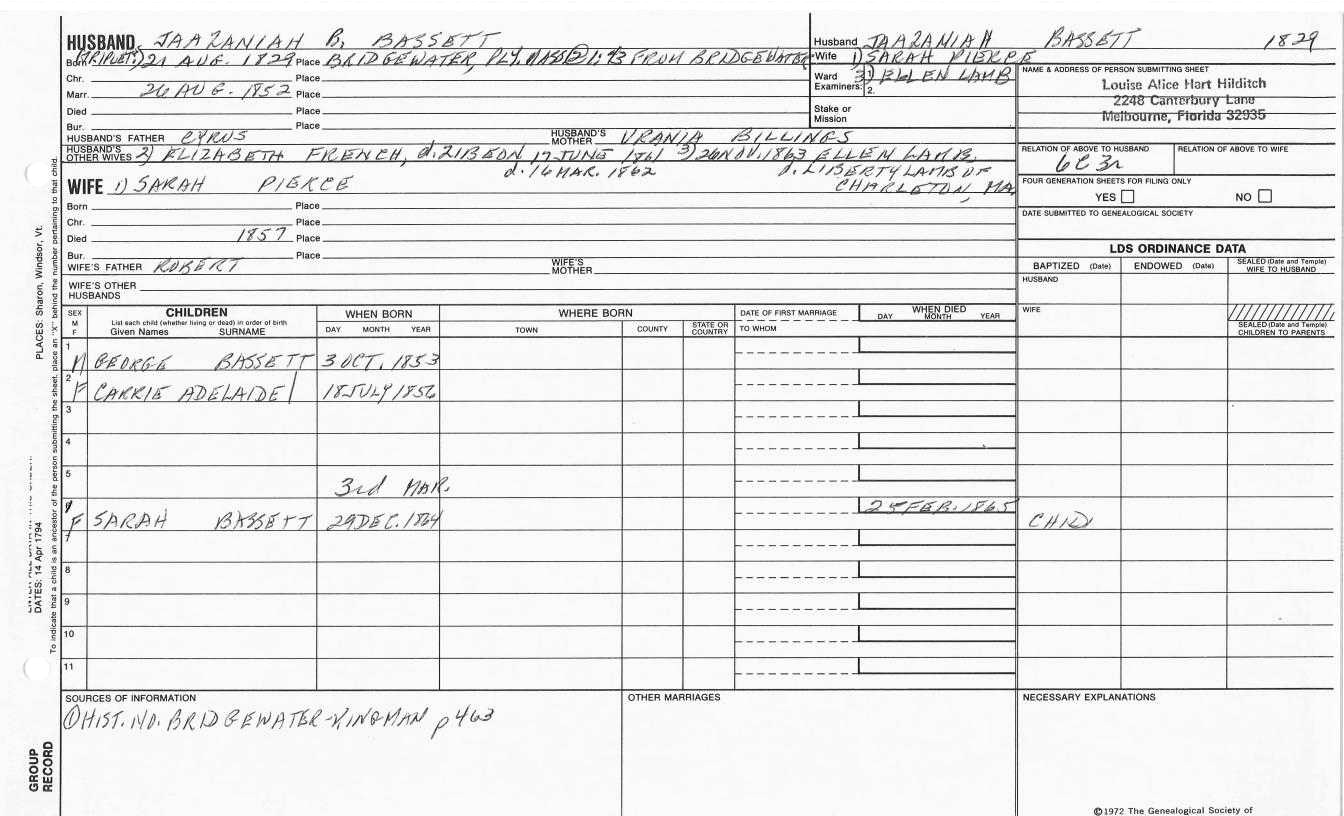 HUSBAND JAAZANIAH B. BASSETT
Born (TRIPLET) 21 AUG. 1829 Place BRIDGEWATER, PLY. MASS ② 1:43 FROM BRIDGEWATER
Chr. Place
Marr. 26 AUG. 1852 Place
Died Place
Bur. Place
HUSBAND'S FATHER CYRUS HUSBAND'S MOTHER URANIA BILLINGS
HUSBAND'S OTHER WIVES 2) ELIZABETH FRENCH, d. ZIBEON 17 JUNE 1861 3) 26 NOV. 1863 ELLEN LAMB,
d. 16 MAR. 1862 d. LIBERTY LAMB OF
CHARLETON, MA.
WIFE 1) SARAH PIERCE
Born Place
Chr. Place
Died 1857 Place
Bur. Place
WIFE'S FATHER ROBERT WIFE'S MOTHER
WIFE'S OTHER HUSBANDS
Husband JAAZANIAH BASSETT 1829
Wife 1) SARAH PIERCE
3) ELLEN LAMB
Ward
Examiners: 1.
2.
Stake or
Mission
NAME & ADDRESS OF PERSON SUBMITTING SHEET
Louise Alice Hart Hilditch
2248 Canterbury Lane
Melbourne, Florida 32935
RELATION OF ABOVE TO HUSBAND RELATION OF ABOVE TO WIFE
6C3r
FOUR GENERATION SHEETS FOR FILING ONLY
YES NO
DATE SUBMITTED TO GENEALOGICAL SOCIETY
LDS ORDINANCE DATA
BAPTIZED (Date) ENDOWED (Date) SEALED (Date and Temple) WIFE TO HUSBAND
HUSBAND
WIFE
SEALED (Date and Temple) CHILDREN TO PARENTS
SEX
M
F
CHILDREN
List each child (whether living or dead) in order of birth
Given Names SURNAME
WHEN BORN
DAY MONTH YEAR
WHERE BORN
TOWN COUNTY STATE OR COUNTRY
DATE OF FIRST MARRIAGE
TO WHOM
WHEN DIED
DAY MONTH YEAR
1
M GEORGE BASSETT 3 OCT. 1853
2
F CARRIE ADELAIDE 18 JULY 1856
3
4
5
3rd MAR.
F SARAH BASSETT 29 DEC. 1864 25 FEB. 1865 CHILD
7
8
9
10
11
SOURCES OF INFORMATION
① HIST. NO. BRIDGEWATER-KINGMAN p 463
OTHER MARRIAGES
NECESSARY EXPLANATIONS
©1972 The Genealogical Society of
PLACES: Sharon, Windsor, Vt.
DATES: 14 Apr 1794
To indicate that a child is an ancestor of the person submitting the sheet, place an "X" behind the number pertaining to that child.
GROUP
RECORD